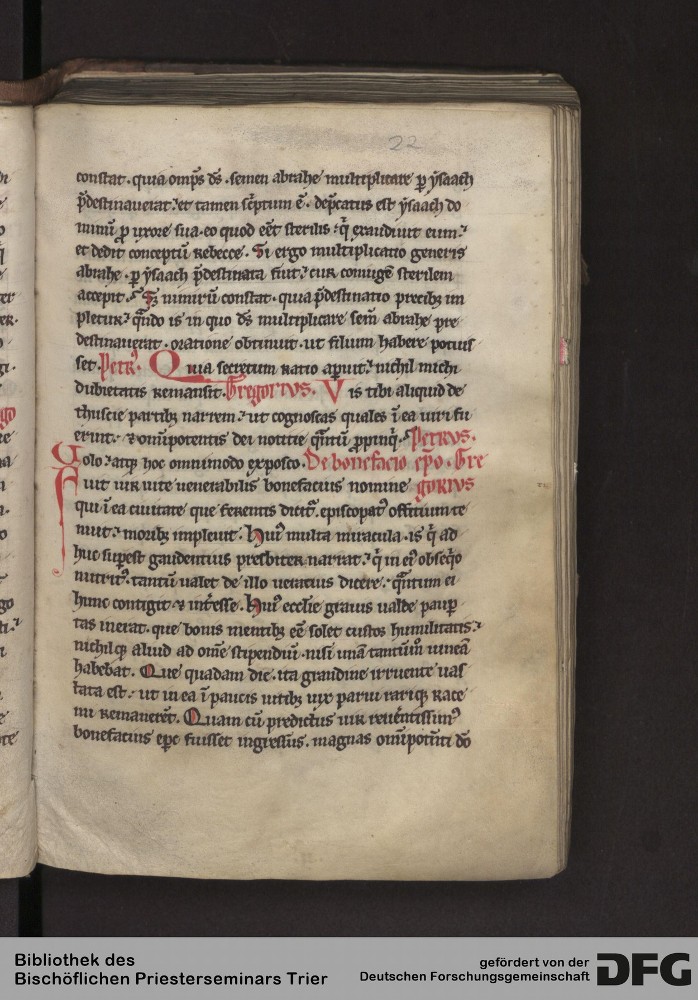 22
constat. quia omp̄s ds̄. semen abrahe multiplicare ꝑ ẏsaach
p̄destinauerat. et tamen sc̄ptum ē. dep̄catus est ẏsaach do
minū ꝓ uxore sua. eo quod eēt sterilis. q̄ exaudiuit eum.
et dedit conceptū rebecce. Si ergo multiplicatio generis
abrahe. ꝑ ẏsaach p̄destinata fuit. cur coniugē sterilem
accepit. Sꝫ nimirū constat. quia p̄destinatio precibꝫ im
pletur. qn̄do is in quo ds̄ multiplicare sem̄ abrahe pre
destinauerat. oratione obtinuit. ut filium habere potuis
set. Petrꝰ. Quia secretum ratio aperuit. nichil michi
dubietatis remansit. Gregorivs. Vis tibi aliquid de
thuscie partibꝫ narrem. ut cognoscas quales ī ea uiri fu
erint. ⁊ omīpotentis dei notitie qn̄tū ꝓpinq̄. Petrvs.
Uolo. atqꝫ hoc omnimodo exposco. De bonefacio ep̄o. Gre
Fuit uir uite uenerabilis bonefacius nomine gorivs
qui ī ea ciuitate que ferentis dicit᷑. episcopatꝰ offitium te
nuit. moribꝫ impleuit. Huiꝰ multa miracula. is q̄ ad
huc sup̄est gaudentius presbiter narrat. q̄ in eiꝰ obseq̄o
nutritꝰ. tantū ualet de illo ueratius dicere. qn̄tum ei
hunc contigit ⁊ int̄esse. Huiꝰ ecclīe grauis ualde pauꝑ
tas inerat. que bonis mentibꝫ eē solet custos humilitatis.
nichilqꝫ aliud ad om̄e stipendiū. nisi unā tantūmo uineā
habebat. Que quadam die. ita grandine irruente uas
tata est. ut in ea ī paucis uitibꝫ uix parui rariqꝫ race
mi remanerēt. Quam cū predictus uir reuerentissimꝰ
bonefacius epc̄ fuisset ingressus. magnas omīpotenti dō
Bibliothek des
Bischöflichen Priesterseminars Trier
gefördert von der
Deutschen Forschungsgemeinschaft DFG